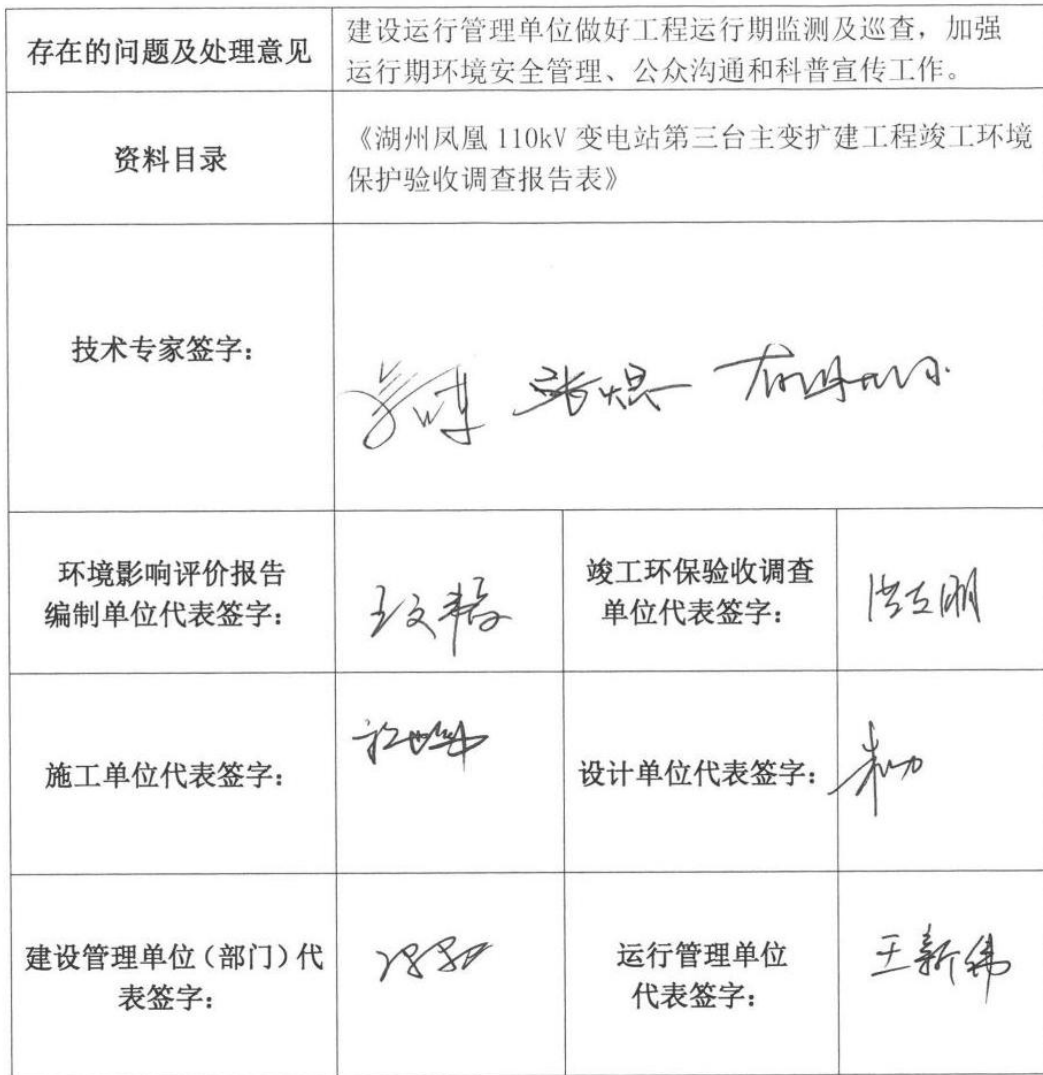 存在的问题及处理意见
建设运行管理单位做好工程运行期监测及巡查，加强
运行期环境安全管理、公众沟通和科普宣传工作。
资料目录
《湖州凤凰 110kV 变电站第三台主变扩建工程竣工环境
保护验收调查报告表》
技术专家签字：
环境影响评价报告
编制单位代表签字：
竣工环保验收调查
单位代表签字：
施工单位代表签字：
设计单位代表签字：
建设管理单位（部门）代
表签字：
运行管理单位
代表签字：
王新伟